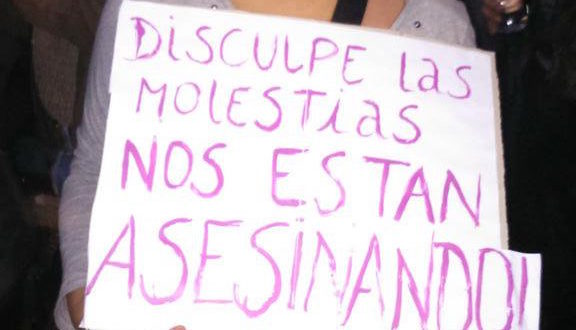 DISCULPE las
MOLESTiaS
NOS ESTAN
ASESINANDO!